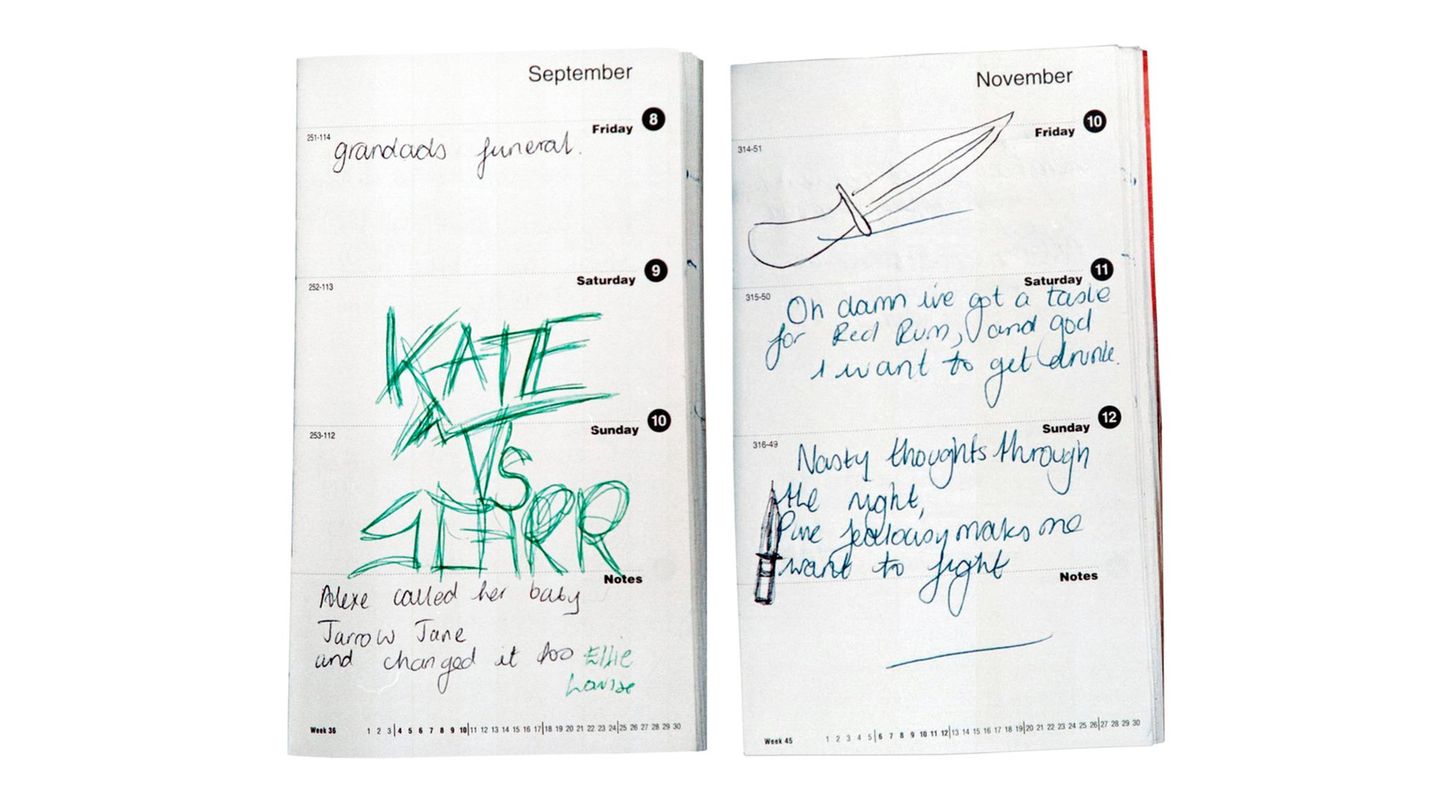 September
8
Friday
251-114
grandads funeral.
9
Saturday
252-113
KATE
10
Sunday
253-112
VS
STARR
Notes
Alexe called her baby
Jarrow Jane
and changed it too Ellie
Louise
Week 36 1 2 3 4 5 6 7 8 9 10 11 12 13 14 15 16 17 18 19 20 21 22 23 24 25 26 27 28 29 30
November
10
Friday
314-51
11
Saturday
315-50
Oh damn ive got a taste
for Red Rum, and god
I want to get drunk.
12
Sunday
316-49
Nasty thoughts through
the night,
Pure jealousy makes me
want to fight
Notes
Week 45 1 2 3 4 5 6 7 8 9 10 11 12 13 14 15 16 17 18 19 20 21 22 23 24 25 26 27 28 29 30